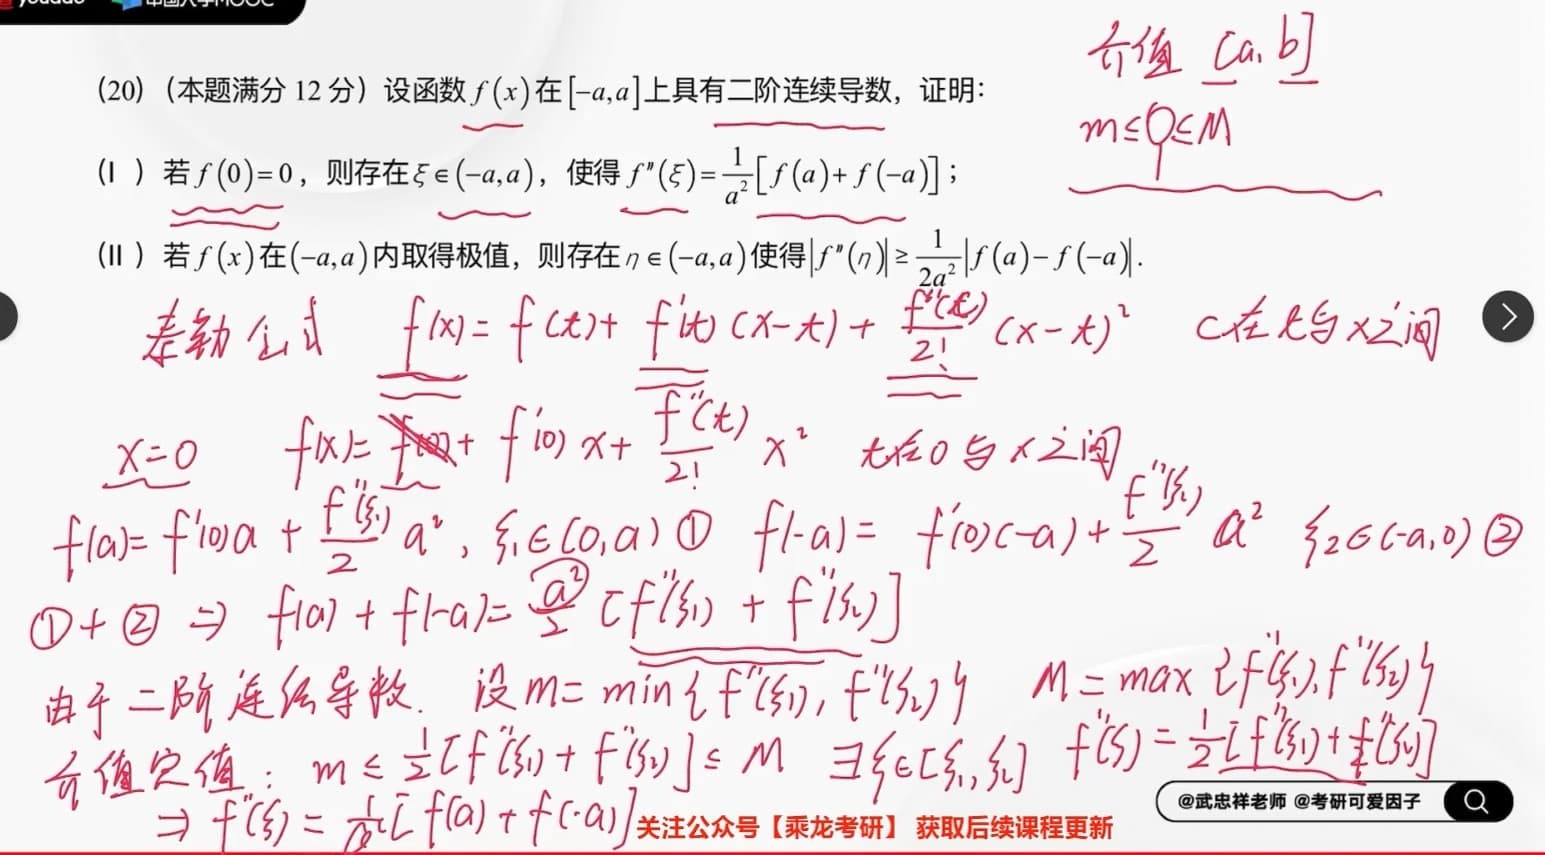 youdao 中国大学MOOC
介值 [a, b]
m≤○≤M
(20)（本题满分 12 分）设函数 f(x) 在 [−a,a] 上具有二阶连续导数，证明：
(Ⅰ) 若 f(0)=0，则存在 ξ∈(−a,a)，使得 f″(ξ)=1/a²[f(a)+f(−a)]；
(Ⅱ) 若 f(x) 在 (−a,a) 内取得极值，则存在 η∈(−a,a) 使得 |f″(η)|≥1/2a²|f(a)−f(−a)|.
泰勒公式 f(x)= f(t)+ f'(t)(x−t)+ f''(t)/2! (x−t)² C在t与x之间
x=0 f(x)= f(0)+ f'(0)x+ f''(t)/2! x² t在0与x之间
f(a)= f'(0)a + f''(ξ₁)/2 a², ξ₁∈(0,a) ① f(-a)= f'(0)(-a)+ f''(ξ₂)/2 a² ξ₂∈(-a,0) ②
①+② ⇒ f(a)+f(-a)= a²/2 [f''(ξ₁) + f''(ξ₂)]
由于二阶连续导数. 设m= min{f''(ξ₁), f''(ξ₂)} M = max{f''(ξ₁), f''(ξ₂)}
介值定值: m ≤ 1/2[f''(ξ₁)+f''(ξ₂)] ≤ M ∃ξ∈[ξ₁,ξ₂] f''(ξ)=1/2[f''(ξ₁)+f''(ξ₂)]
⇒ f''(ξ) = 1/a²[f(a)+f(-a)]
@武忠祥老师 @考研可爱因子
关注公众号【乘龙考研】 获取后续课程更新